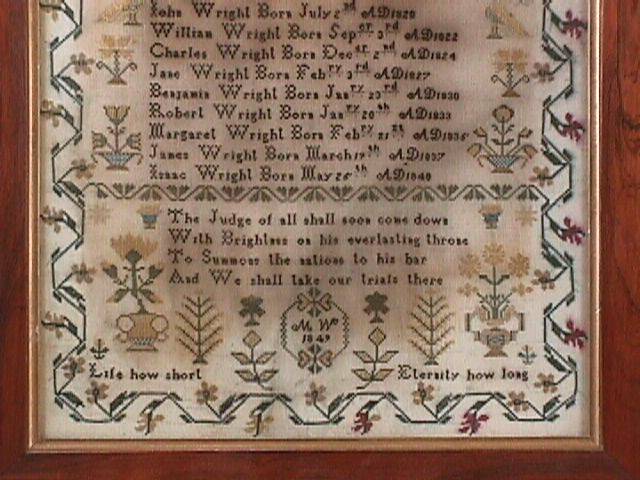 John Wright Born July 2nd AD 1820
William Wright Born Sepbr 3rd AD 1822
Charles Wright Born Decbr 2nd AD 1824
Jane Wright Born Febry 3rd AD 1827
Benjamin Wright Born Janry 23rd AD 1830
Robert Wright Born Janry 20th AD 1833
Margaret Wright Born Febry 21th AD 1835
James Wright Born March 19th AD 1837
Isaac Wright Born May 25th AD 1840
The Judge of all shall soon come down
With Brightness on his everlasting throne
To Summons the nations to his bar
And We shall take our trials there
M Wt
1849
Life how short
Eternity how long